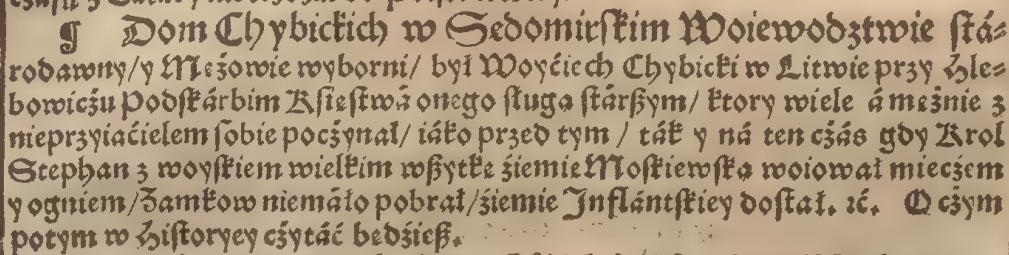 ¶ Dom Chybickich w Sędomirſkim Woiewodztwie ſtá⸗
rodawny/ y Mężowie wyborni/ był Woyćiech Chybicki w Litwie przy Hle⸗
bowiczu Podſkárbim Kſięſtwá onego ſługa ſtárßym/ ktory wiele á mężnie z
nieprzyiaćielem ſobie poczynał/ iáko przed tym / ták y ná ten czás gdy Krol
Stephan z woyſkiem wielkim wßytkę źiemię Moſkiewſką woiował mieczem
y ogniem/ Zamkow niemáło pobrał/ źiemie Inflántſkiey doſtał. ꝛć. O czym
potym w Hiſtoryey czytáć będźieß.